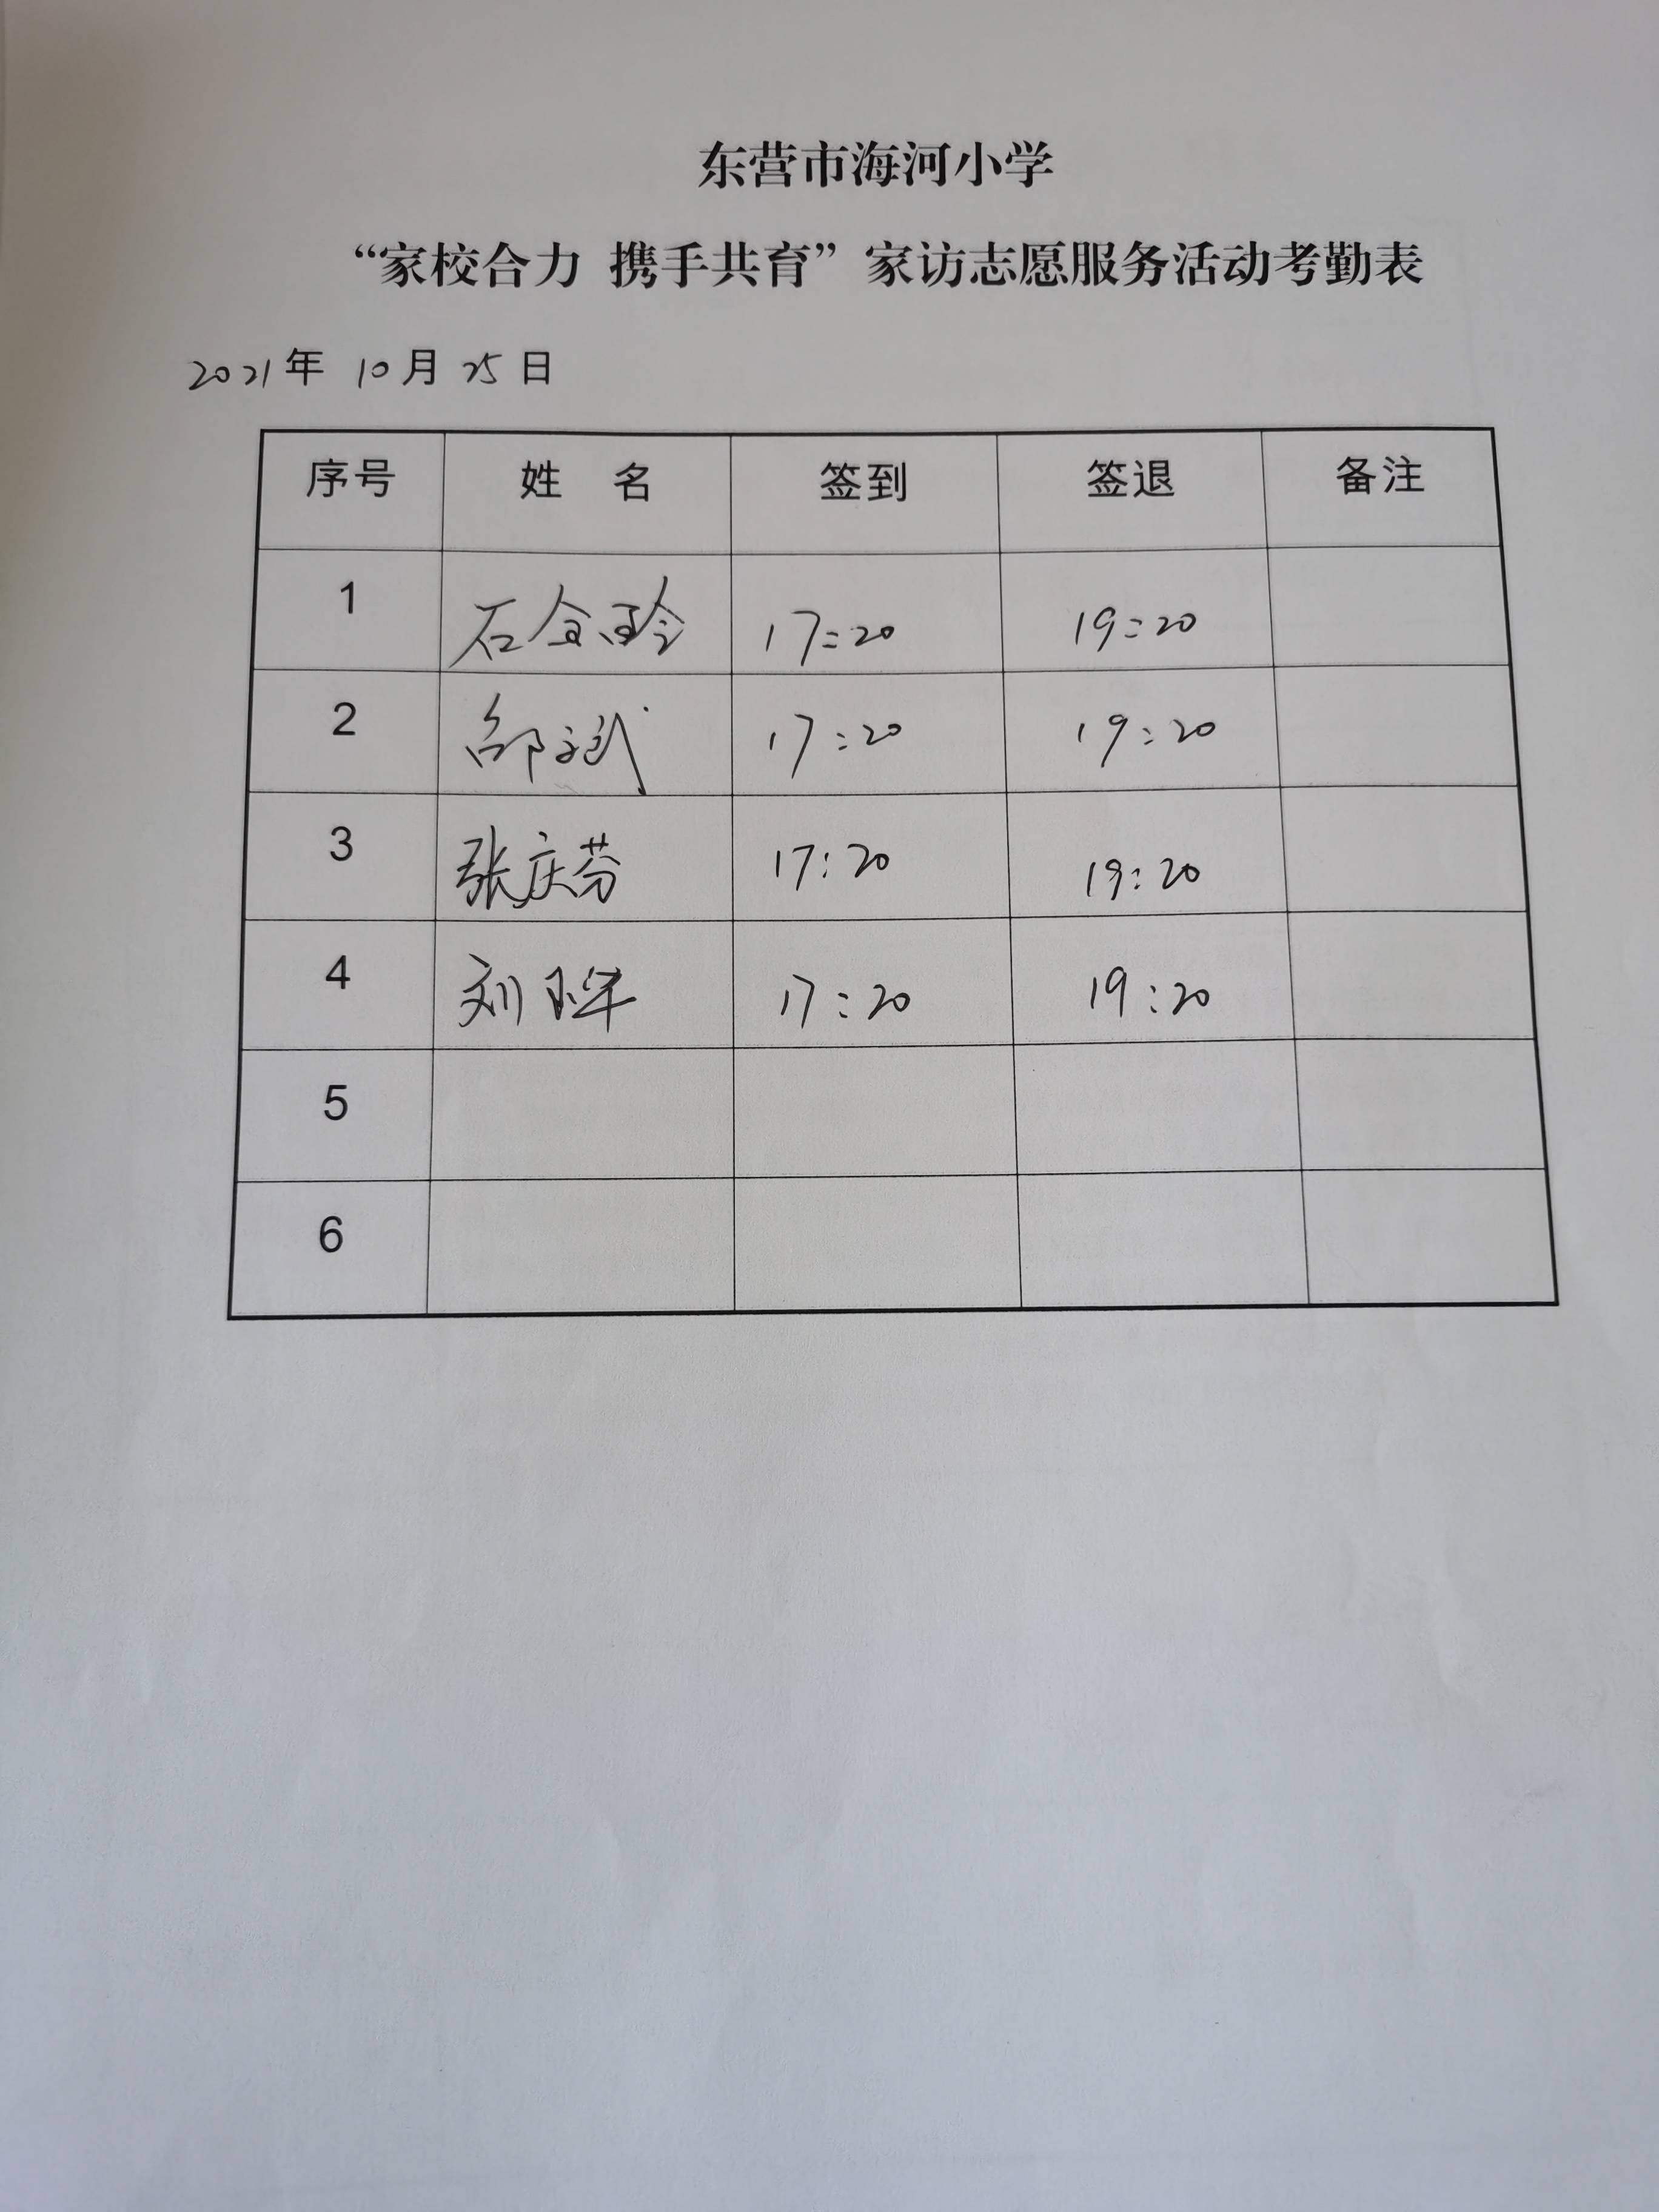 东营市海河小学
“家校合力 携手共育”家访志愿服务活动考勤表
2021年 10月 25日
序号 姓 名 签到 签退 备注
1 石 17:20 19:20
2 邵斌 17:20 19:20
3 张庆芬 17:20 19:20
4 刘 17:20 19:20
5
6